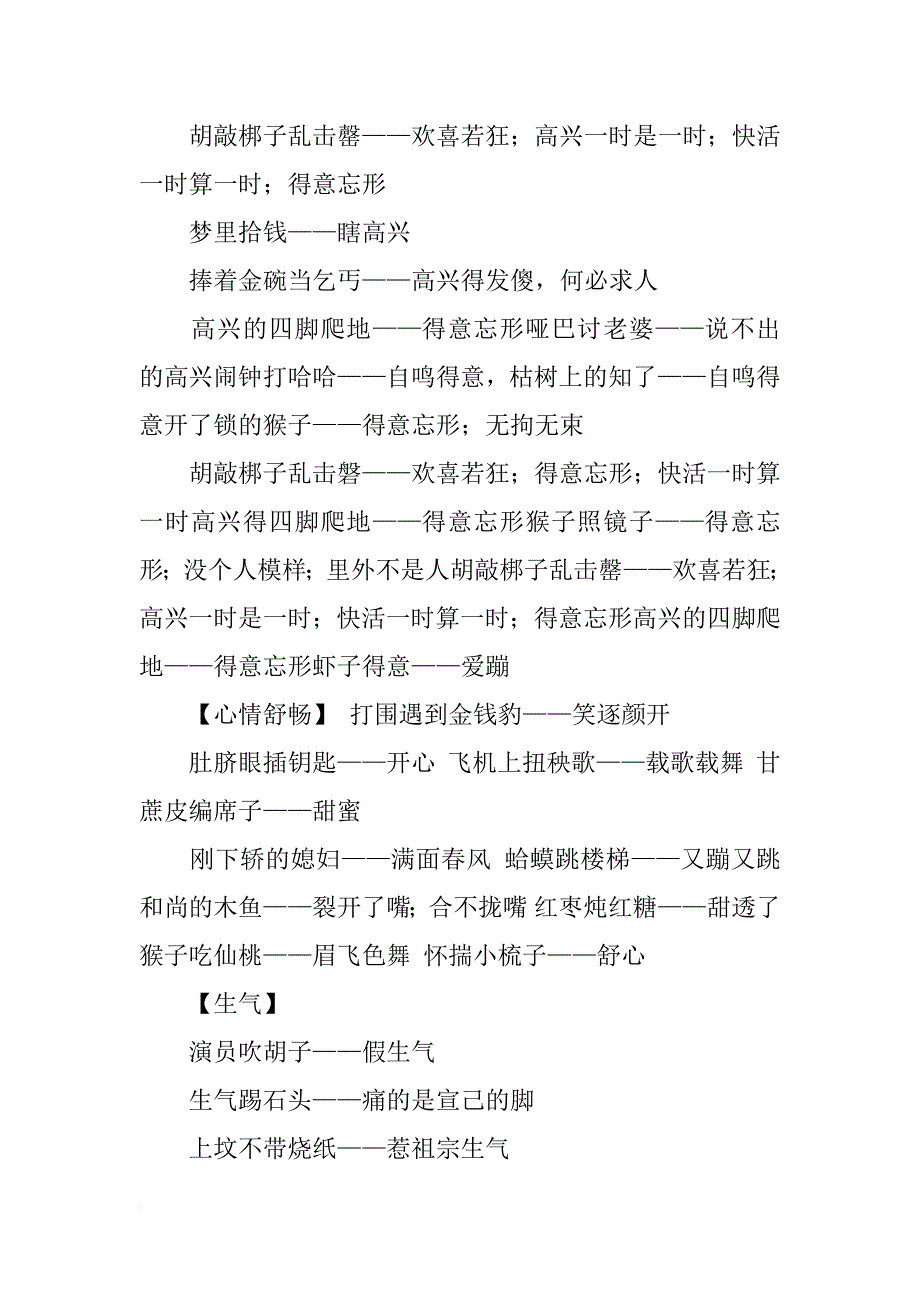 胡敲梆子乱击罄——欢喜若狂；高兴一时是一时；快活
一时算一时；得意忘形
梦里拾钱——瞎高兴
捧着金碗当乞丐——高兴得发傻，何必求人
高兴的四脚爬地——得意忘形哑巴讨老婆——说不出
的高兴闹钟打哈哈——自鸣得意，枯树上的知了——自鸣得
意开了锁的猴子——得意忘形；无拘无束
胡敲梆子乱击磬——欢喜若狂；得意忘形；快活一时算
一时高兴得四脚爬地——得意忘形猴子照镜子——得意忘
形；没个人模样；里外不是人胡敲梆子乱击罄——欢喜若狂；
高兴一时是一时；快活一时算一时；得意忘形高兴的四脚爬
地——得意忘形虾子得意——爱蹦
【心情舒畅】 打围遇到金钱豹——笑逐颜开
肚脐眼插钥匙——开心 飞机上扭秧歌——载歌载舞 甘
蔗皮编席子——甜蜜
刚下轿的媳妇——满面春风 蛤蟆跳楼梯——又蹦又跳
和尚的木鱼——裂开了嘴；合不拢嘴 红枣炖红糖——甜透了
猴子吃仙桃——眉飞色舞 怀揣小梳子——舒心
【生气】
演员吹胡子——假生气
生气踢石头——痛的是宣己的脚
上坟不带烧纸——惹祖宗生气